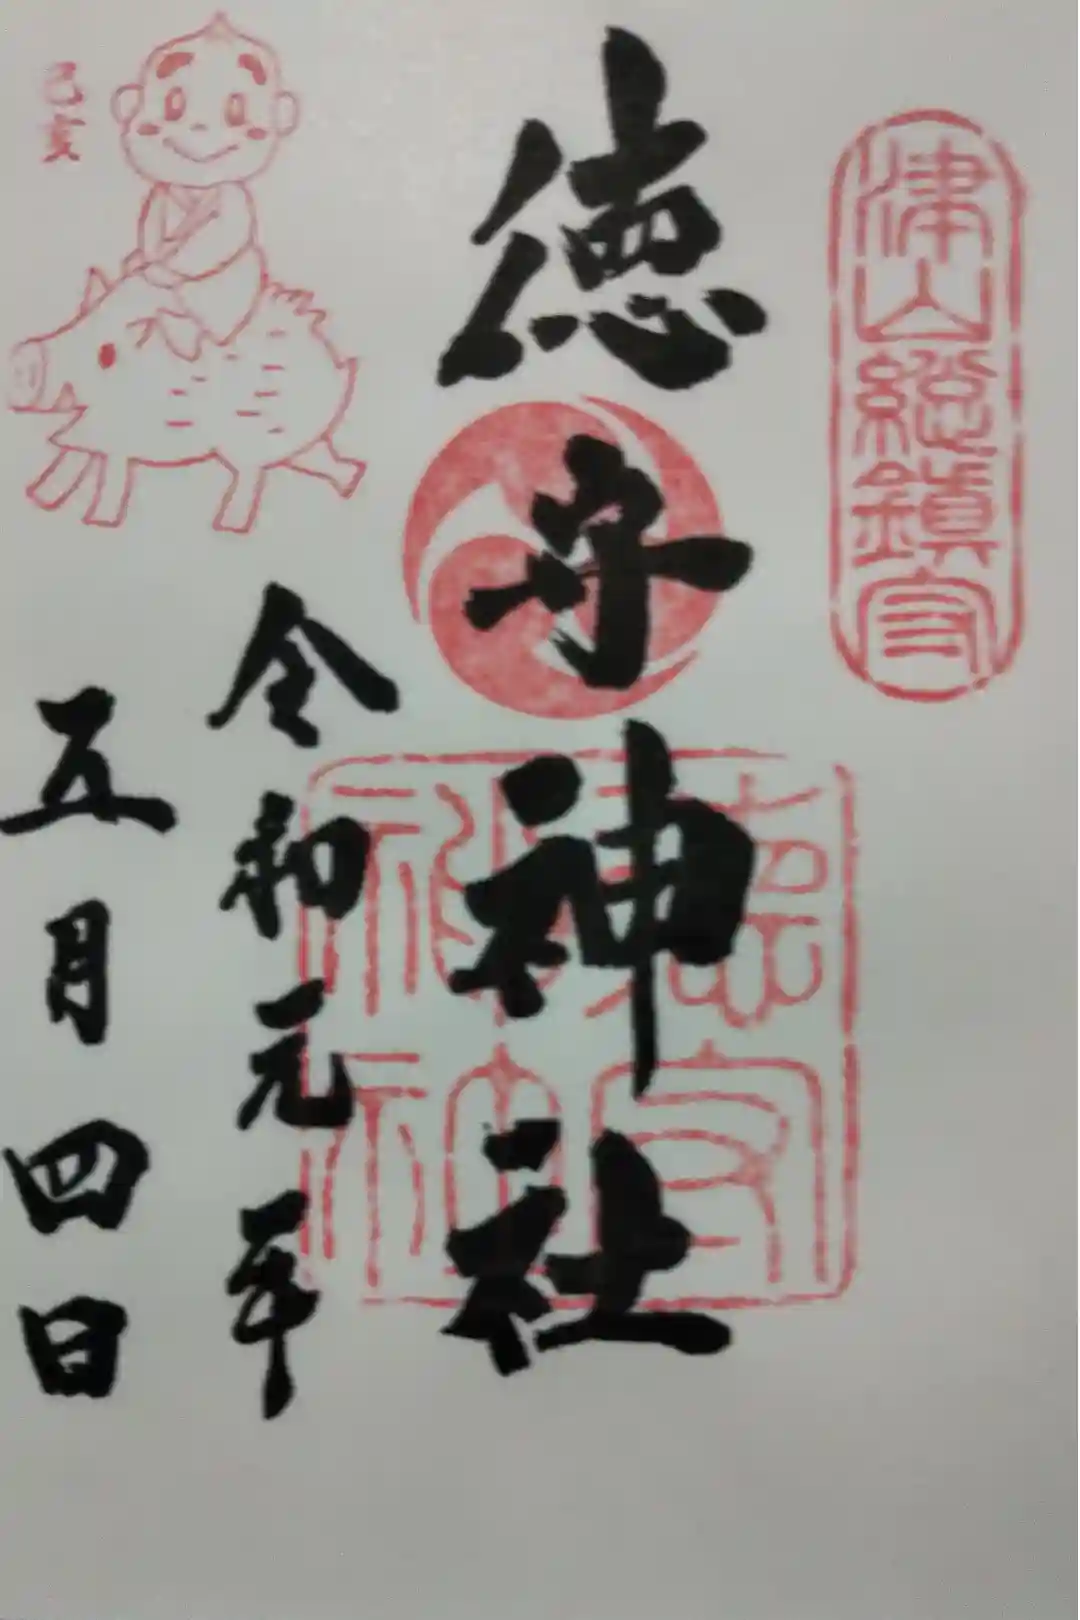 津山総鎮守
徳守神社
徳守
神社
令和元年
五月四日
己亥